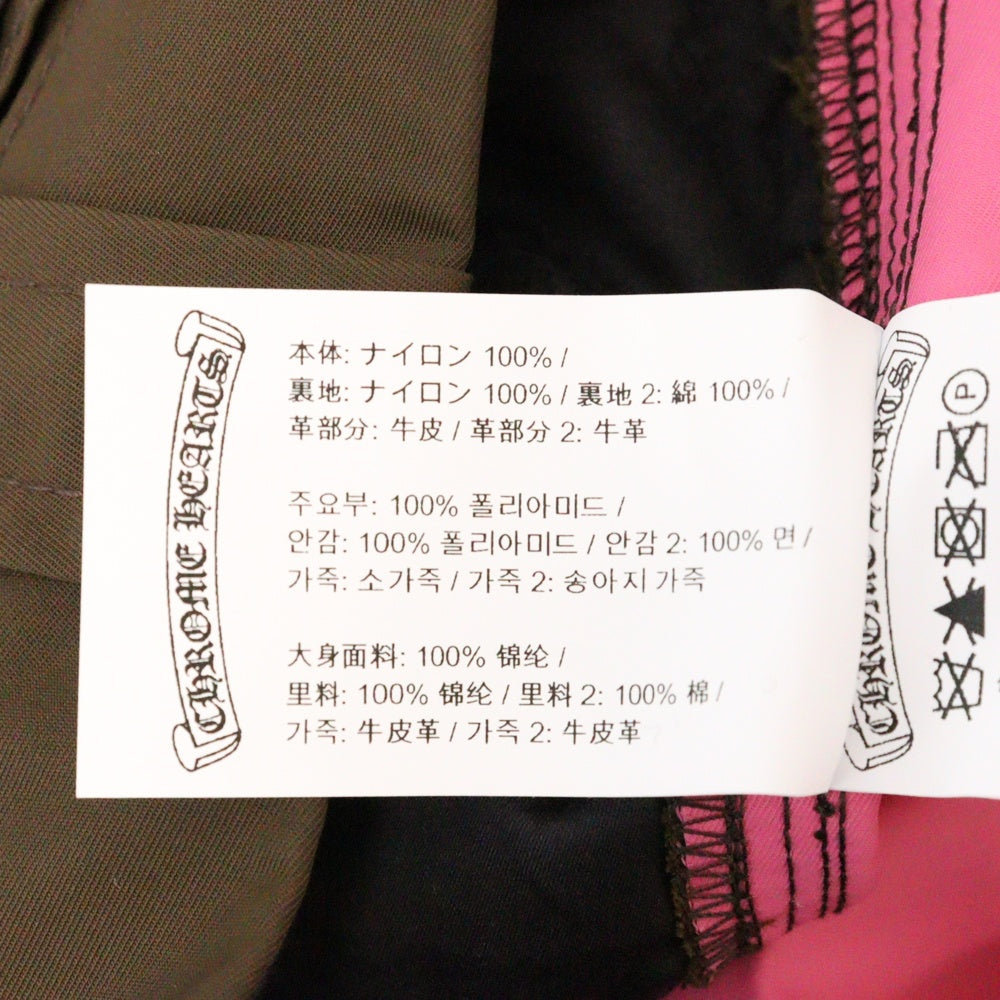 CHROME HEARTS
本体: ナイロン 100% /
裏地: ナイロン 100% / 裏地 2: 綿 100% /
革部分: 牛皮 / 革部分 2: 牛革
주요부: 100% 폴리아미드 /
안감: 100% 폴리아미드 / 안감 2: 100% 면 /
가죽: 소가죽 / 가죽 2: 송아지 가죽
大身面料: 100% 锦纶 /
里料: 100% 锦纶 / 里料 2: 100% 棉 /
가죽: 牛皮革 / 가죽 2: 牛皮革
CHROME HEARTS
P